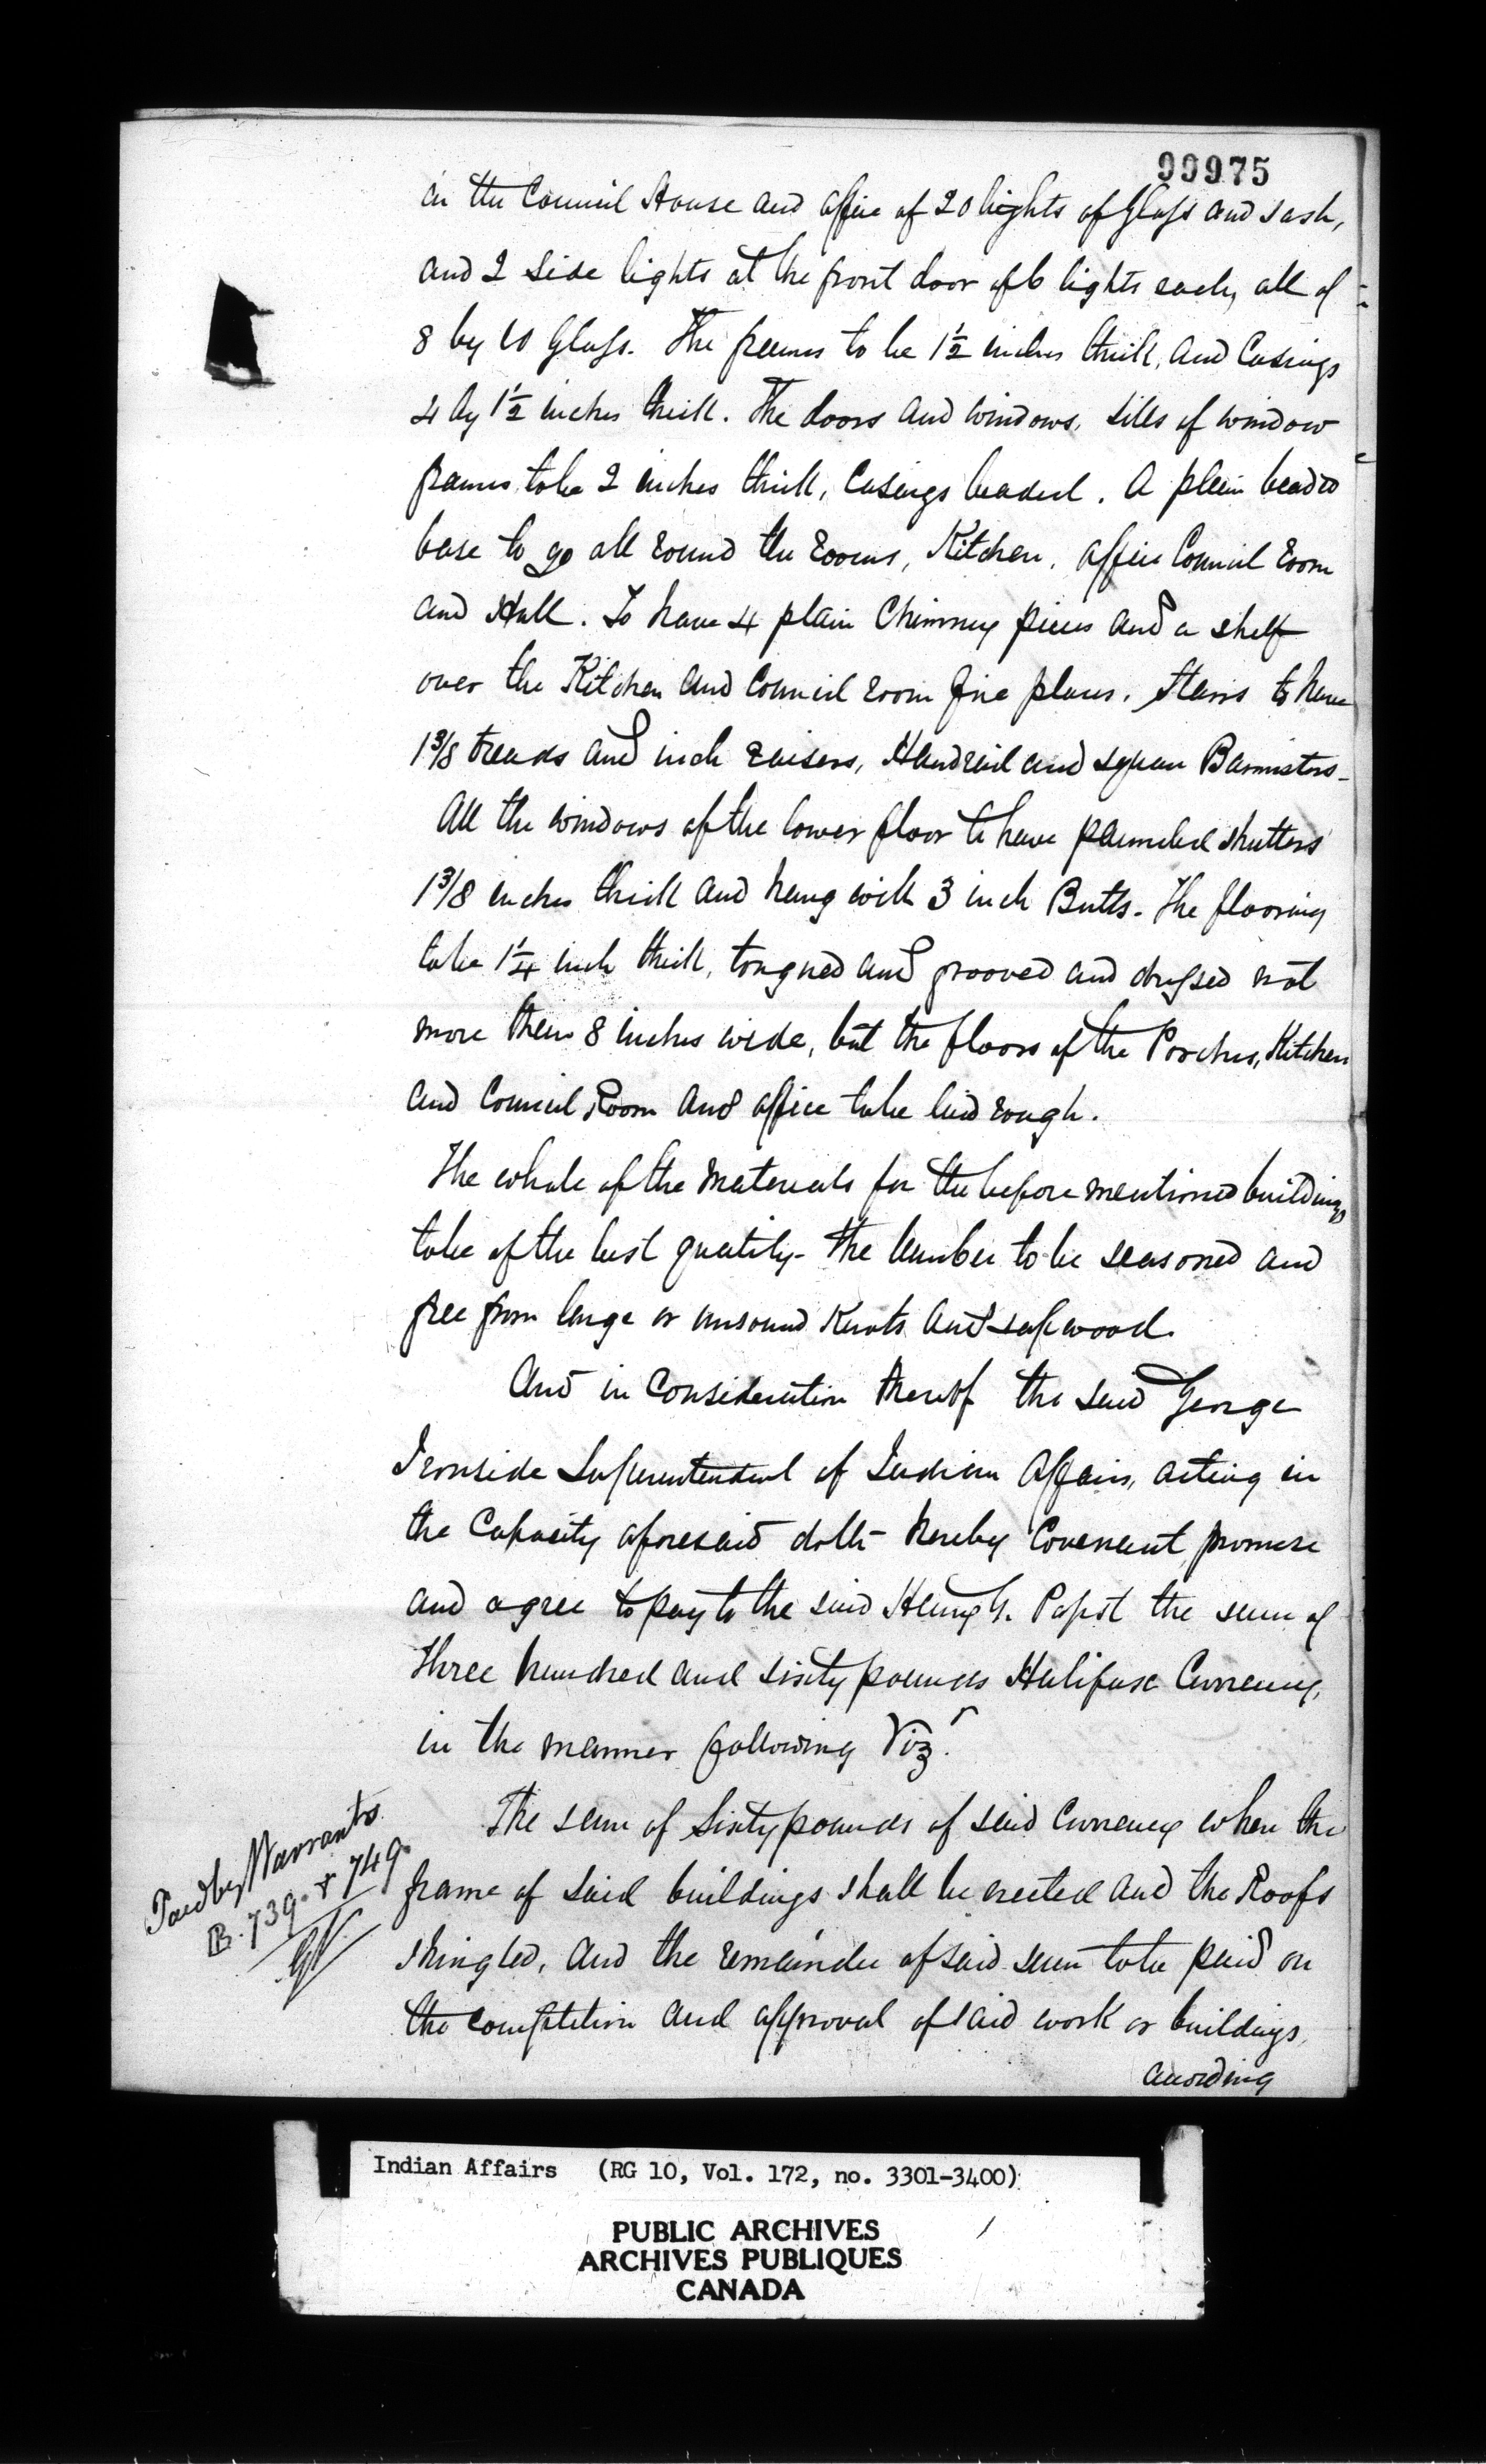 99975
in the Council House and office of 20 lights of Glass and sash,
and 2 side lights at the front door of 6 lights each, all of
8 by 10 Glass. The frames to be 1½ inches thick, and Casings
4 by 1½ inches thick. The doors and windows, sills of window
frames to be 2 inches thick, Casings beaded. A plain beaded
base to go all round the rooms, Kitchen, office Council room
and Hall. To have 4 plain Chimney pieces and a shelf
over the Kitchen and Council room fire places. Stairs to have
1⅜ treads and inch raisers, Handrail and square Bannisters-
All the windows of the lower floor to have pannelled shutters
1⅜ inches thick and hung with 3 inch Butts. The flooring
to be 1¼ inch thick, tongued and grooved and dressed not
more than 8 inches wide, but the floors of the Porches, Kitchen
and Council Room and office to be laid rough.
The whole of the materials for the before mentioned buildings
to be of the best quality- the lumber to be seasoned and
free from large or unsound Knots and sapwood.
And in Consideration thereof the said George
Ironside Superintendent of Indian Affairs, acting in
the Capacity aforesaid doth hereby Covenant, promise
and agree to pay to the said Henry Papst the sum of
three hundred and sixty pounds Halifax Currency,
in the manner following Vizr.
The sum of Sixty pounds of said Currency when the
frame of said buildings shall be erected and the Roofs
shingled, and the remainder of said sum to be paid on
the completion and approval of said work or buildings,
according
Paid by Warrants
B. 739 & 749.
Indian Affairs (RG 10, Vol. 172, no. 3301-3400)
PUBLIC ARCHIVES
ARCHIVES PUBLIQUES
CANADA